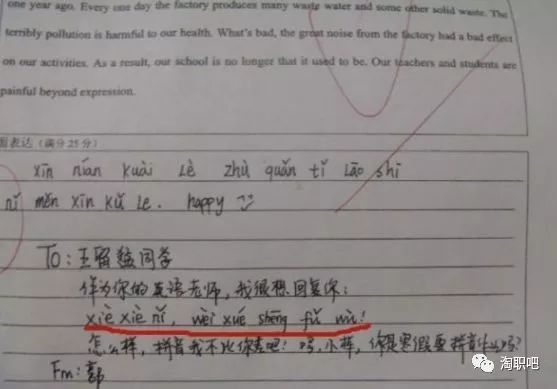 one year ago. Every one day the factory produces many waste water and some other solid waste. The
terribly pollution is harmful to our health. What's bad, the great noise from the factory had a bad effect
on our activities. As a result, our school is no longer that it used to be. Our teachers and students are
painful beyond expression.
面表达（满分25分）
xīn nían kuài Lè zhù quán tǐ Lǎo shī
nǐ mēn xīn kǔ Le. happy
To：王留 同学
作为你的英语老师，我很想回复你：
xiè xiè nǐ, wèi xué shēng fú wù!
怎么样，拼音我不比你差吧！ 小样，你是寒假要拼音作业吗？
Fm：郭
淘职吧